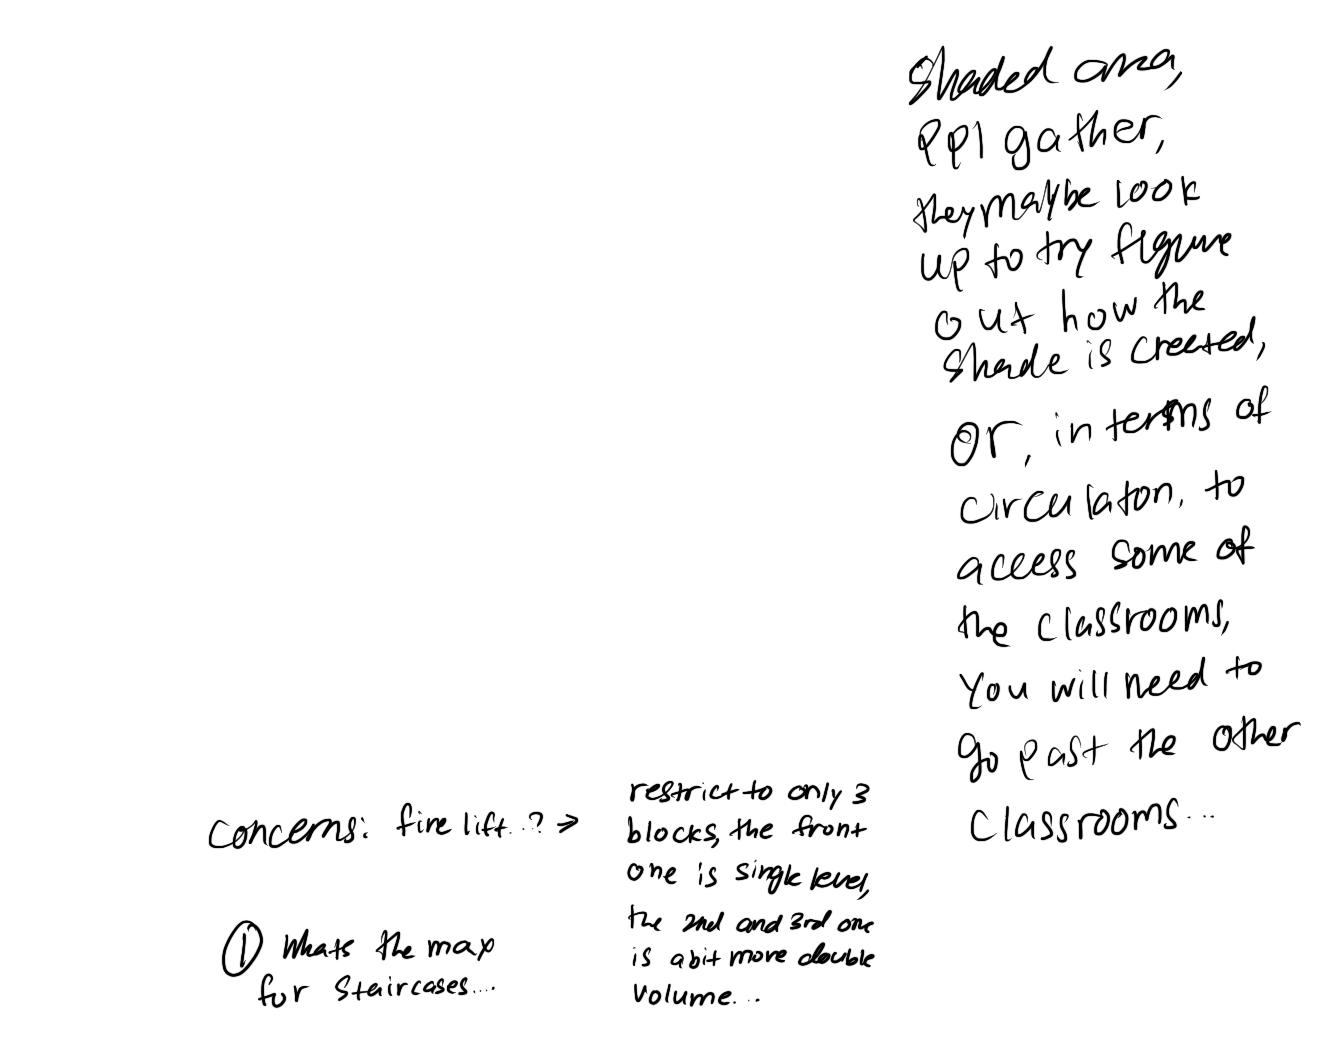 Shaded area,
ppl gather,
they maybe look
up to try figure
out how the
shade is created,
or, in terms of
circulaton, to
access some of
the classrooms,
You will need to
go past the other
classrooms...
Concerns: fire lift..? →
restrict to only 3
blocks, the front
one is single level,
the 2nd and 3rd one
is abit more double
volume...
① Whats the max
for staircases....